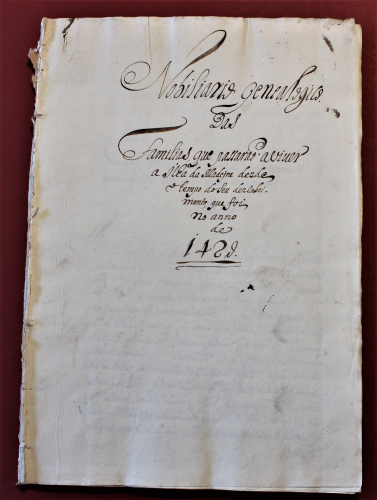 Nobiliario Genealogico
Das
Familias que passarão a viver
a Ilha da Madeira desde
o tempo do seu descobri-
mento que foi
no anno
de
1420.